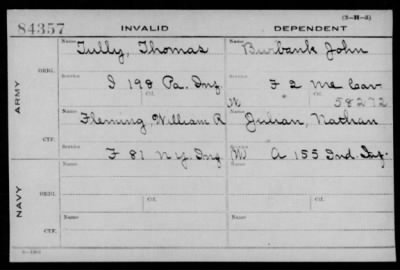 (3-H-3)
84357 INVALID DEPENDENT
ARMY
ORIG.
Name Tully, Thomas Name Burbank John
Service I 198 Pa. Inf. Service F 2 Me Cav
Ctf. Ctf. 58272
W
CTF.
Name Fleming, William R Name Julian, Nathan
Service F 81 N.Y. Inf. Service W A 155 Ind. Inf.
NAVY
ORIG.
Name Name
Ctf. Ctf.
CTF.
Name Name